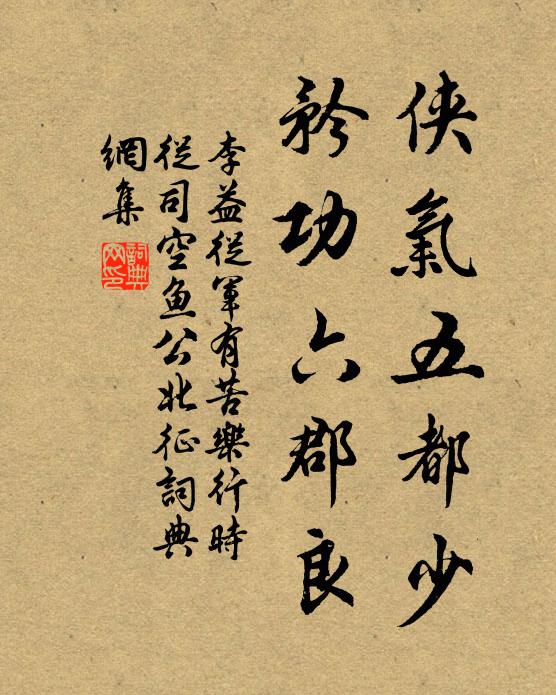 俠氣五都少
矜功六郡良
李益從軍有苦樂行時
從司空魚公北征詞典
網集
詞典網印